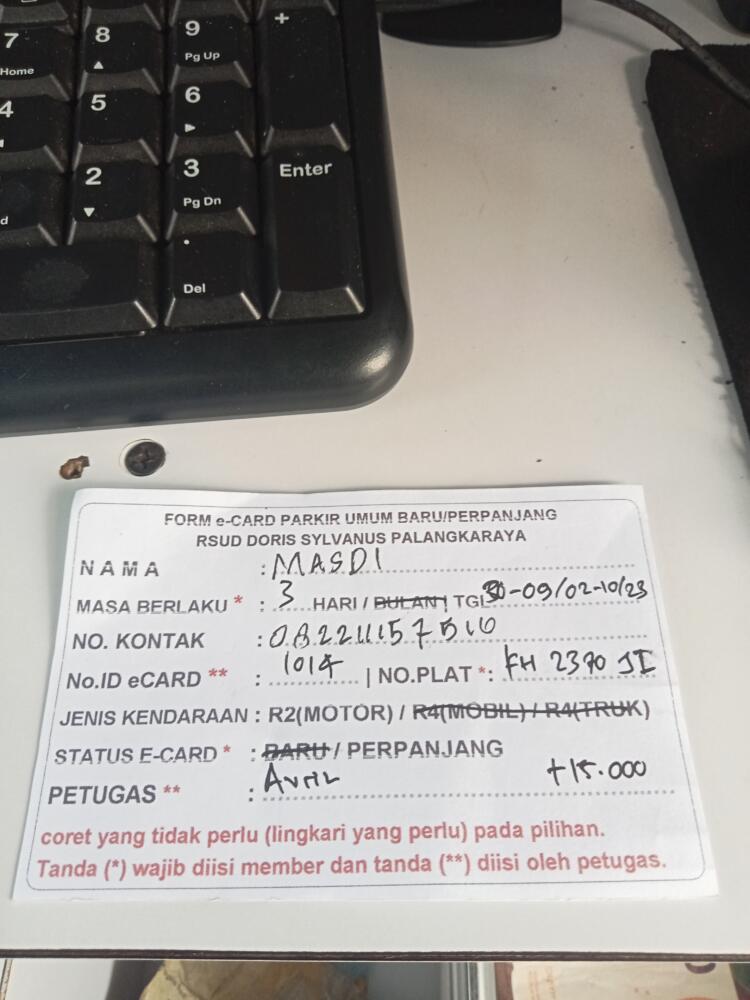 7 Home
8
9 Pg Up
+
4
5
6
2
3 Pg Dn
Enter
d
. Del
FORM e-CARD PARKIR UMUM BARU/PERPANJANG
RSUD DORIS SYLVANUS PALANGKARAYA
NAMA : MASDI
MASA BERLAKU * : 3 HARI / BULAN | TGL 30-09/02-10/23
NO. KONTAK : 082211157510
No.ID eCARD ** : 1014 | NO.PLAT *: KH 2370 JI
JENIS KENDARAAN : R2(MOTOR) / R4(MOBIL) / R4(TRUK)
STATUS E-CARD * : BARU / PERPANJANG
PETUGAS ** : Avril +15.000
coret yang tidak perlu (lingkari yang perlu) pada pilihan.
Tanda (*) wajib diisi member dan tanda (**) diisi oleh petugas.